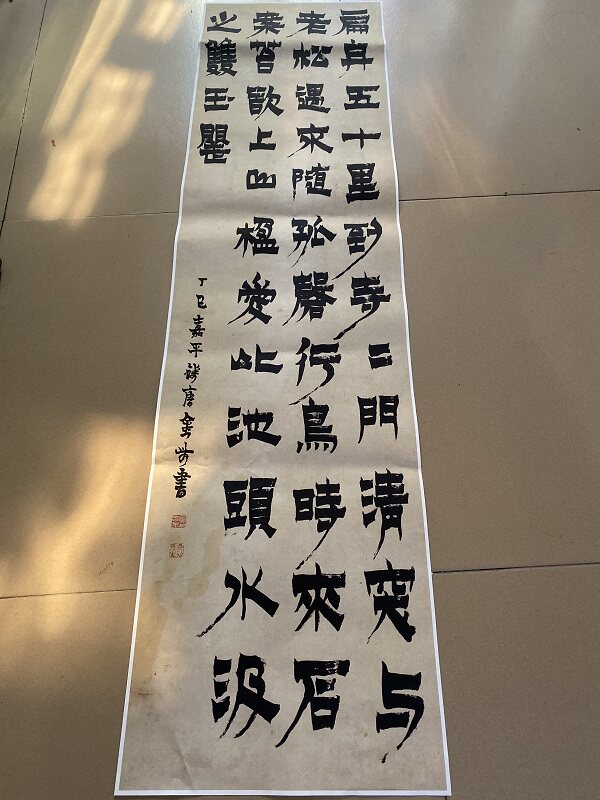 扁舟五十里到寺々門清突与
老松遇来隨孤磬行鳥時來石
案苔欲上山楹愛此池頭水汲
之雙玉罌
丁巳嘉平錢唐金書